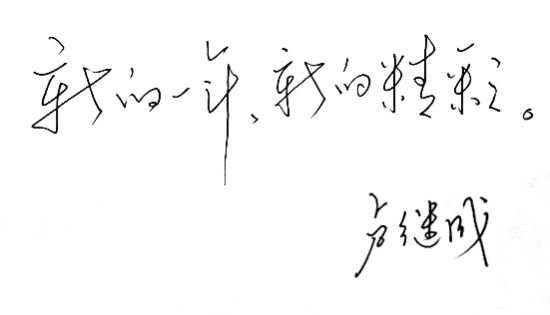 新的一年、新的精彩。
卢继成